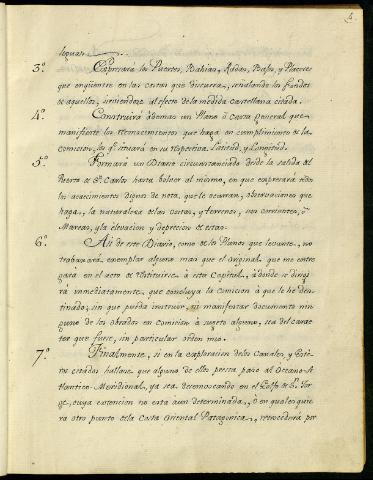 5.
leguas.
3º. Expresará los Puertos, Bahias, Radas, Bajos, y Placeres
que enquentre en las costas que discurra, señalando los fondos
de aquellos, sirviendose al efecto de la medida castellana citada.
4º. Construirá ademas un Plano ó Carta general que
manifieste los reconocimientos que haga en cumplimiento de la
comision, los qe. situará en su respectiva Latitud, y Longitud.
5º. Formará un Diario circunstanciado desde la salida del
Puerto de Sn. Carlos hasta bolver al mismo, en que expresará todos
los acaecimientos dignos de nota, que le ocurran, observaciones que
haga, la naturaleza de las costas, y terrenos, sus corrientes, ó
Mareas, y la elevacion y depresion de estas.
6º. Asi de este Diario, como de los Planos que levante, no
trabaxará exemplar alguno mas que el original que me entre
gará en el acto de restituirse á esta Capital, á donde se dirigi
rá immediatamente, que concluya la comision á que le he des
tinado; sin que pueda instruir, ni manifestar documento nin
guno de los obrados en comision á sugeto alguno, sea del carac
ter que fuese, sin particular orden mio.
7º. Finalmente, si en la exploracion de los Canales, y Este
ros citados hallase que alguno de ellos presta paso al Oceano A
tlantico Meridional, ya sea desemvocando en el Golfo de Sn. Jor
ge, cuya extencion no esta aun determinada, ó en qualesquie
ra otro punto de la Costa Oriental Patagonica, retrocederá por